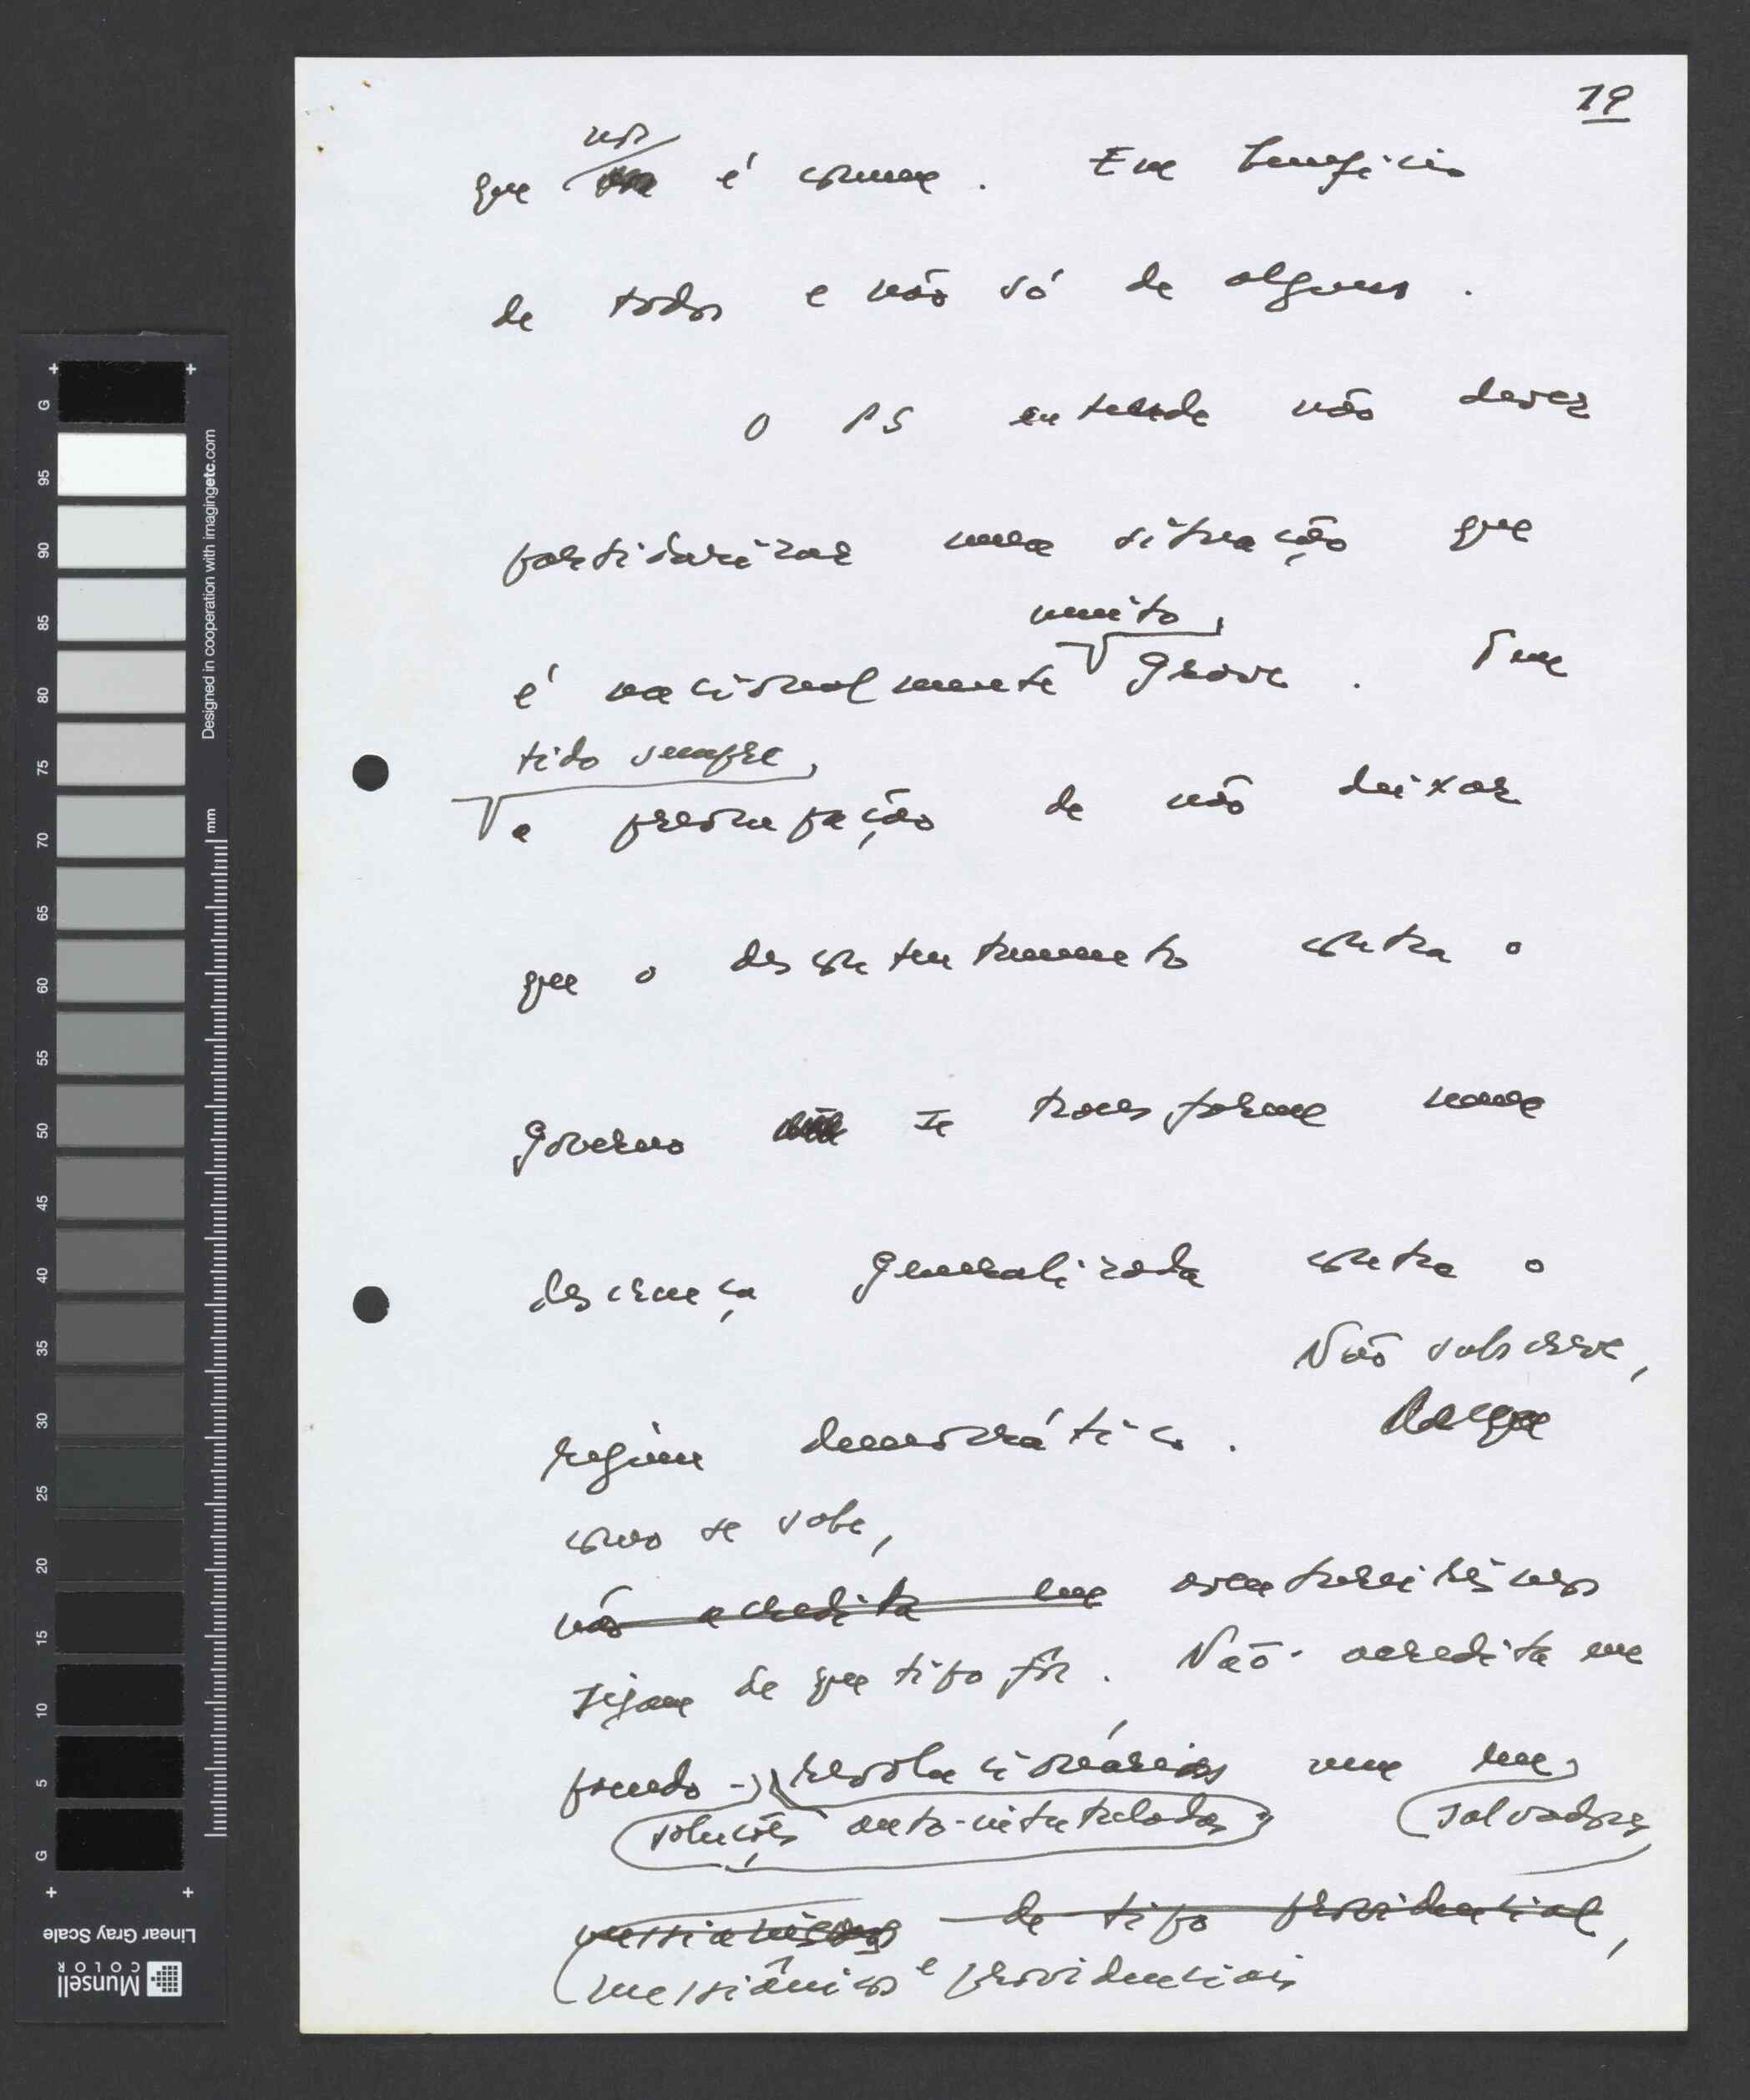 19
nos
que é comum. Em benefício
de todos e não só de alguns.
O PS entende não dever
partidarizar uma situação que
muito
é nacionalmente grave. Tem
tido sempre
a preocupação de não deixar
que o descontentamento contra o
Governo se transforme numa
descrença generalizada contra o
Não subscreve,
regime democrático.
como se sabe,
não acredita em aventureirismos
sejam de que tipo for. Não acredita em
pseudo-revolucionárias nem em
soluções auto-intituladas salvadores
de tipo providencial,
messiânicos e providenciais
G
95
90
85
80
75
70
65
60
55
50
45
40
35
30
25
20
15
10
5
G
Designed in cooperation with imagingetc.com
mm
Munsell
COLOR
Linear Gray Scale